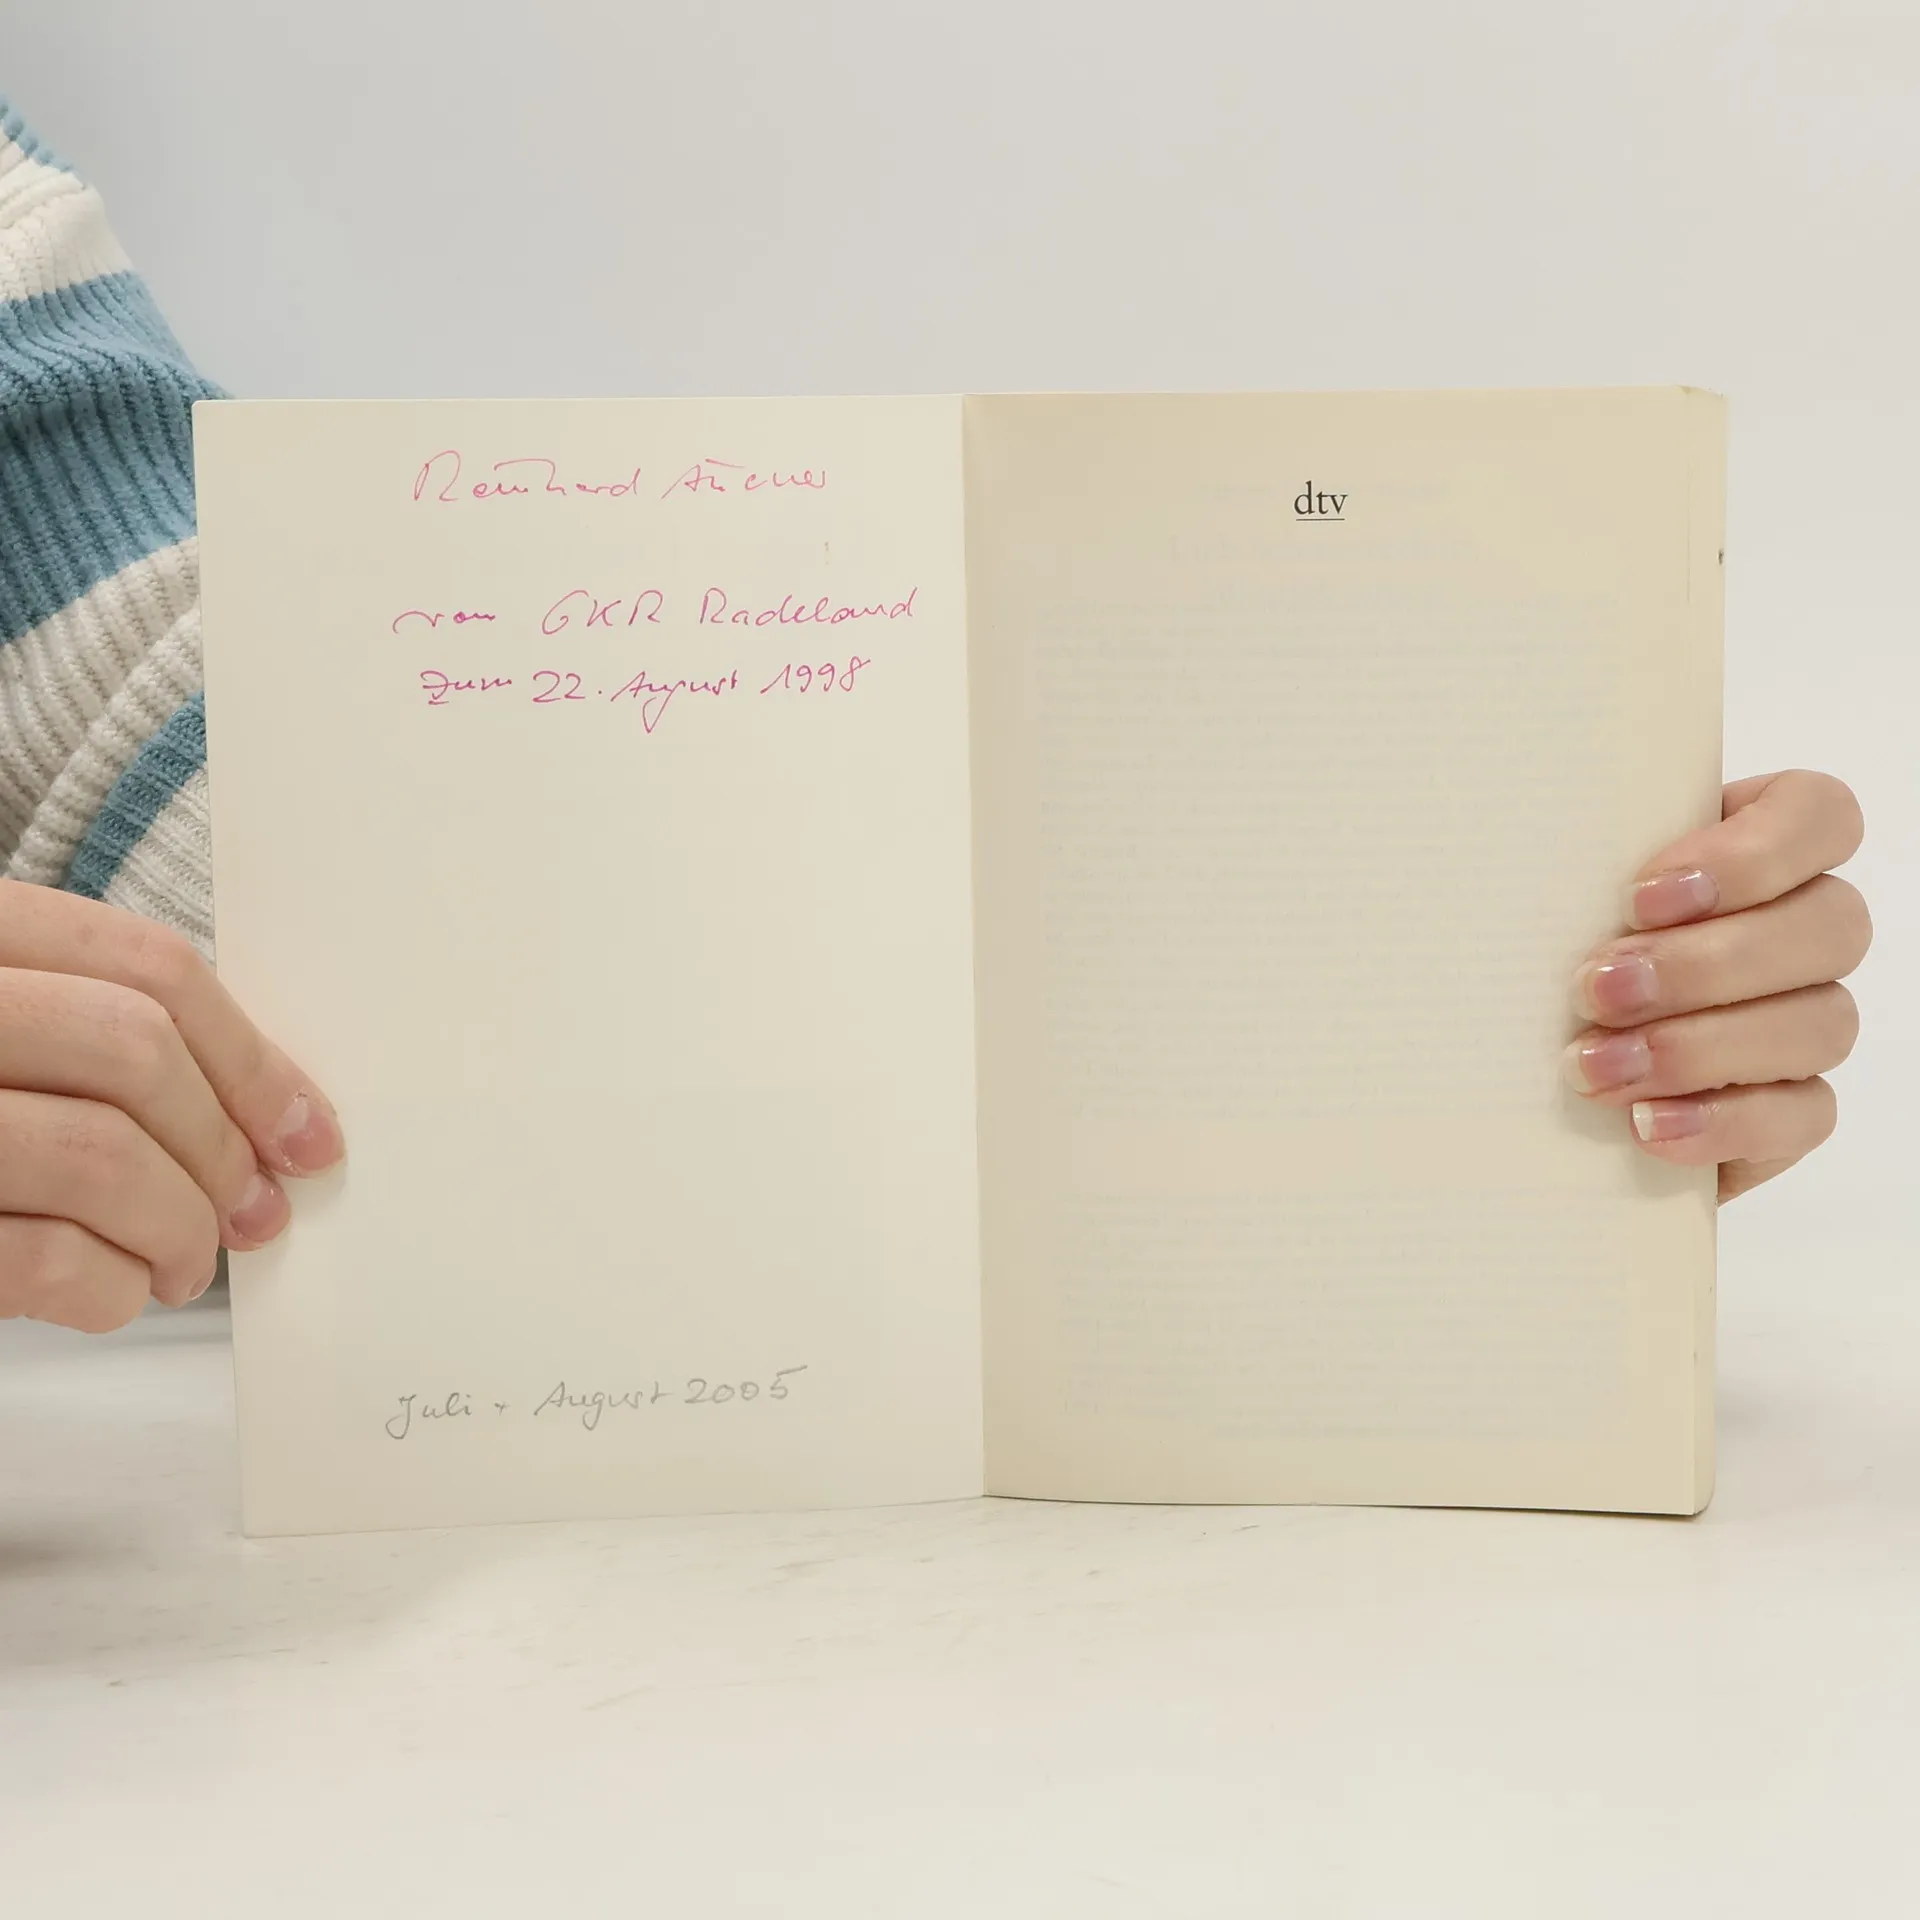 Reinhard
von GKR Radeland
zum 22. August 1998
Juli + August 2005
dtv